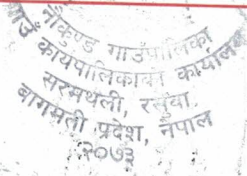 नौकुण्ड गाउँपालिका
गाउँ कार्यपालिकाको कार्यालय
सरमथली, रसुवा
बागमती प्रदेश, नेपाल
२०७३